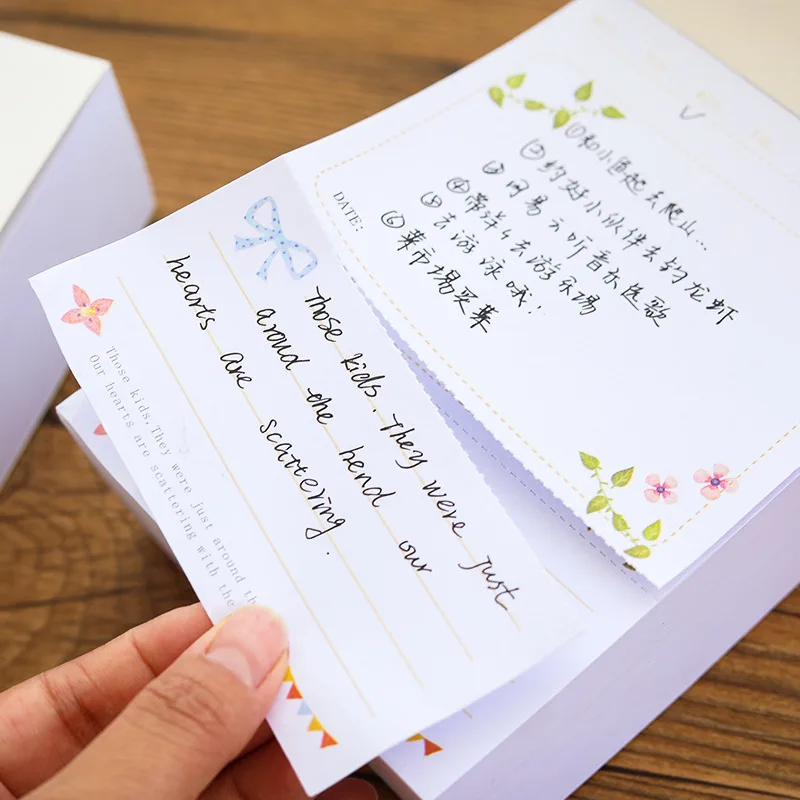 DATE:
①和小鱼起去爬山..
②约好小伙伴去钓龙虾
③网易云听音乐选歌
④带洋仔去游乐场
⑤去游泳哦!:
⑥菜市場买菜
Those kids. They were just
aroud the hend our
hearts are scattering.
Those kids,They were just around th
Our hearts are scattering with the